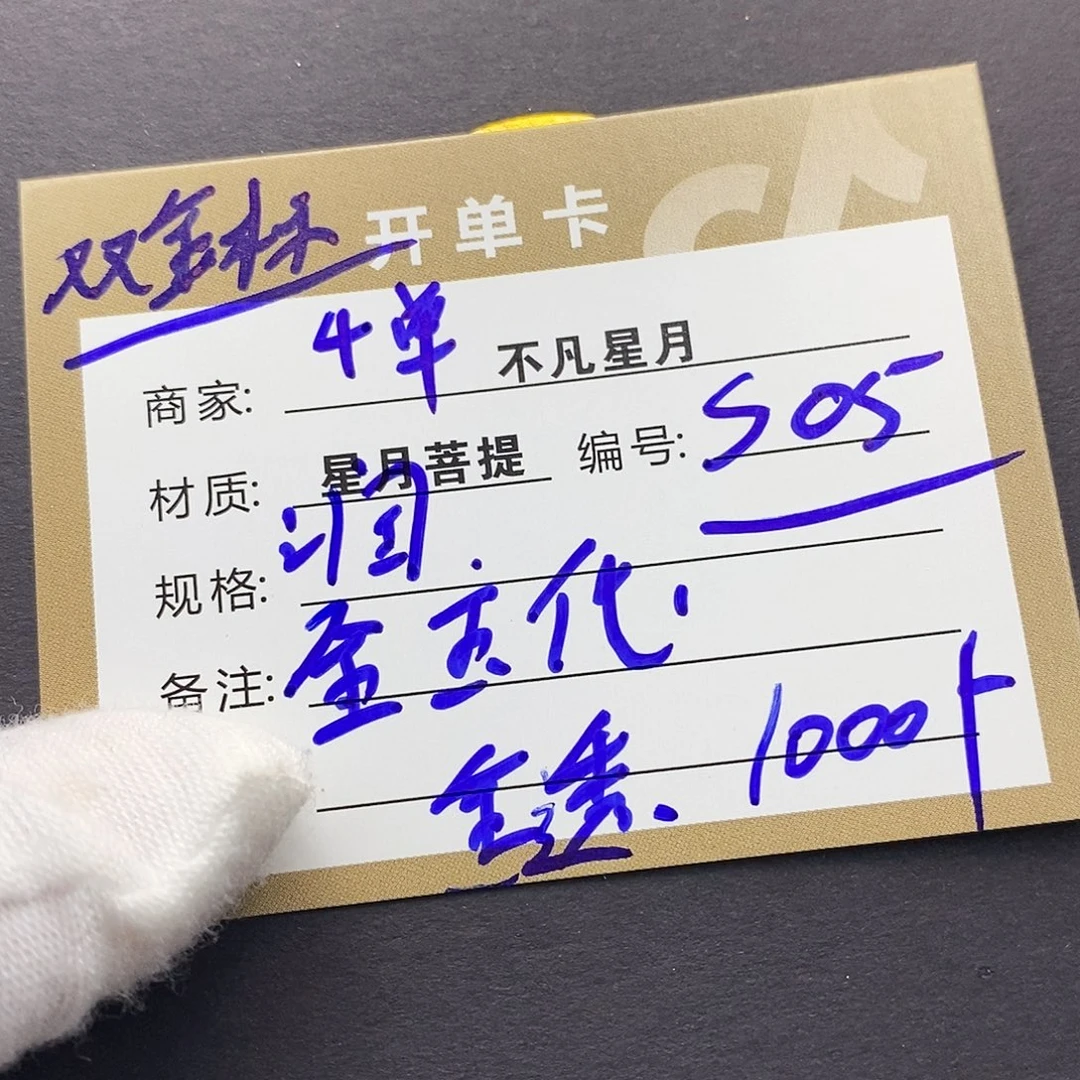 双金标 开单卡
4单
商家: 不凡星月
材质: 星月菩提 编号: S05
规格: 润.
备注: 全玉化.
全透. 1000+